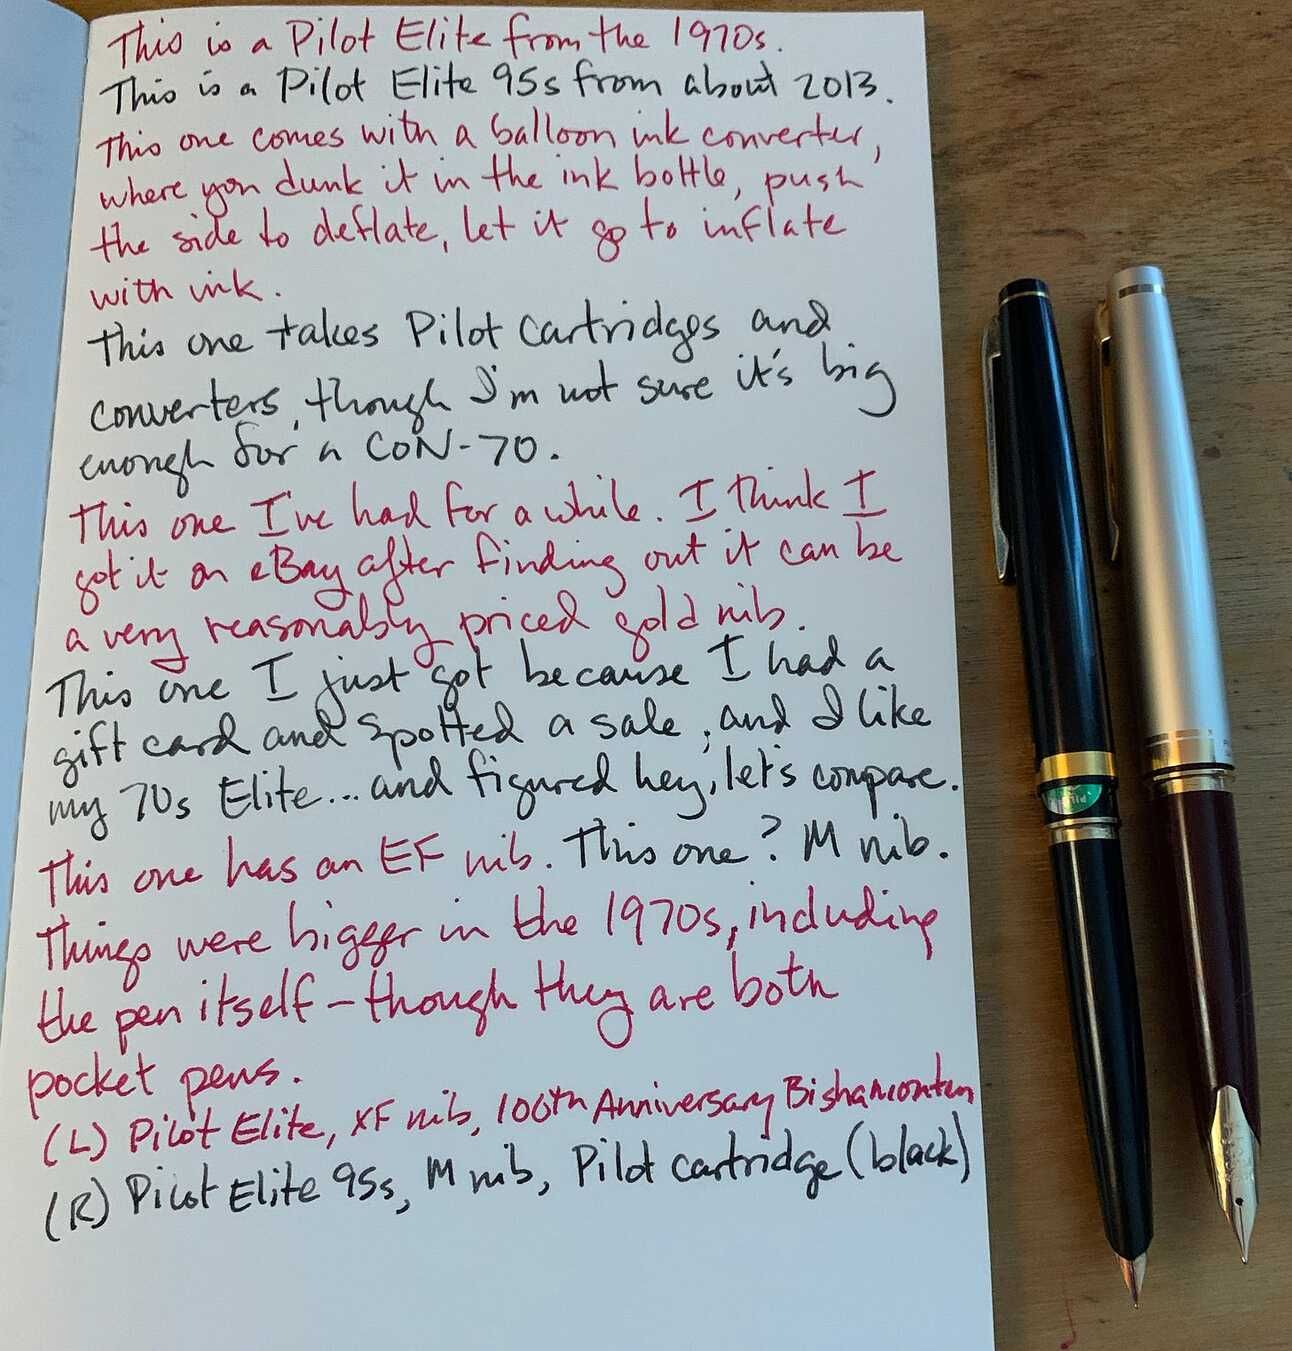 This is a Pilot Elite from the 1970s.
This is a Pilot Elite 95s from about 2013.
This one comes with a balloon ink converter,
where you dunk it in the ink bottle, push
the side to deflate, let it go to inflate
with ink.
This one takes Pilot Cartridges and
converters, though I'm not sure it's big
enough for a CON-70.
This one I've had for a while. I think I
got it on eBay after finding out it can be
a very reasonably priced gold nib.
This one I just got because I had a
gift card and spotted a sale, and I like
my 70s Elite... and figured hey, let's compare.
This one has an EF nib. This one? M nib.
Things were bigger in the 1970s, including
the pen itself - though they are both
pocket pens.
(L) Pilot Elite, XF nib, 100th Anniversary Bishamonten
(R) Pilot Elite 95s, M nib, Pilot cartridge (black)